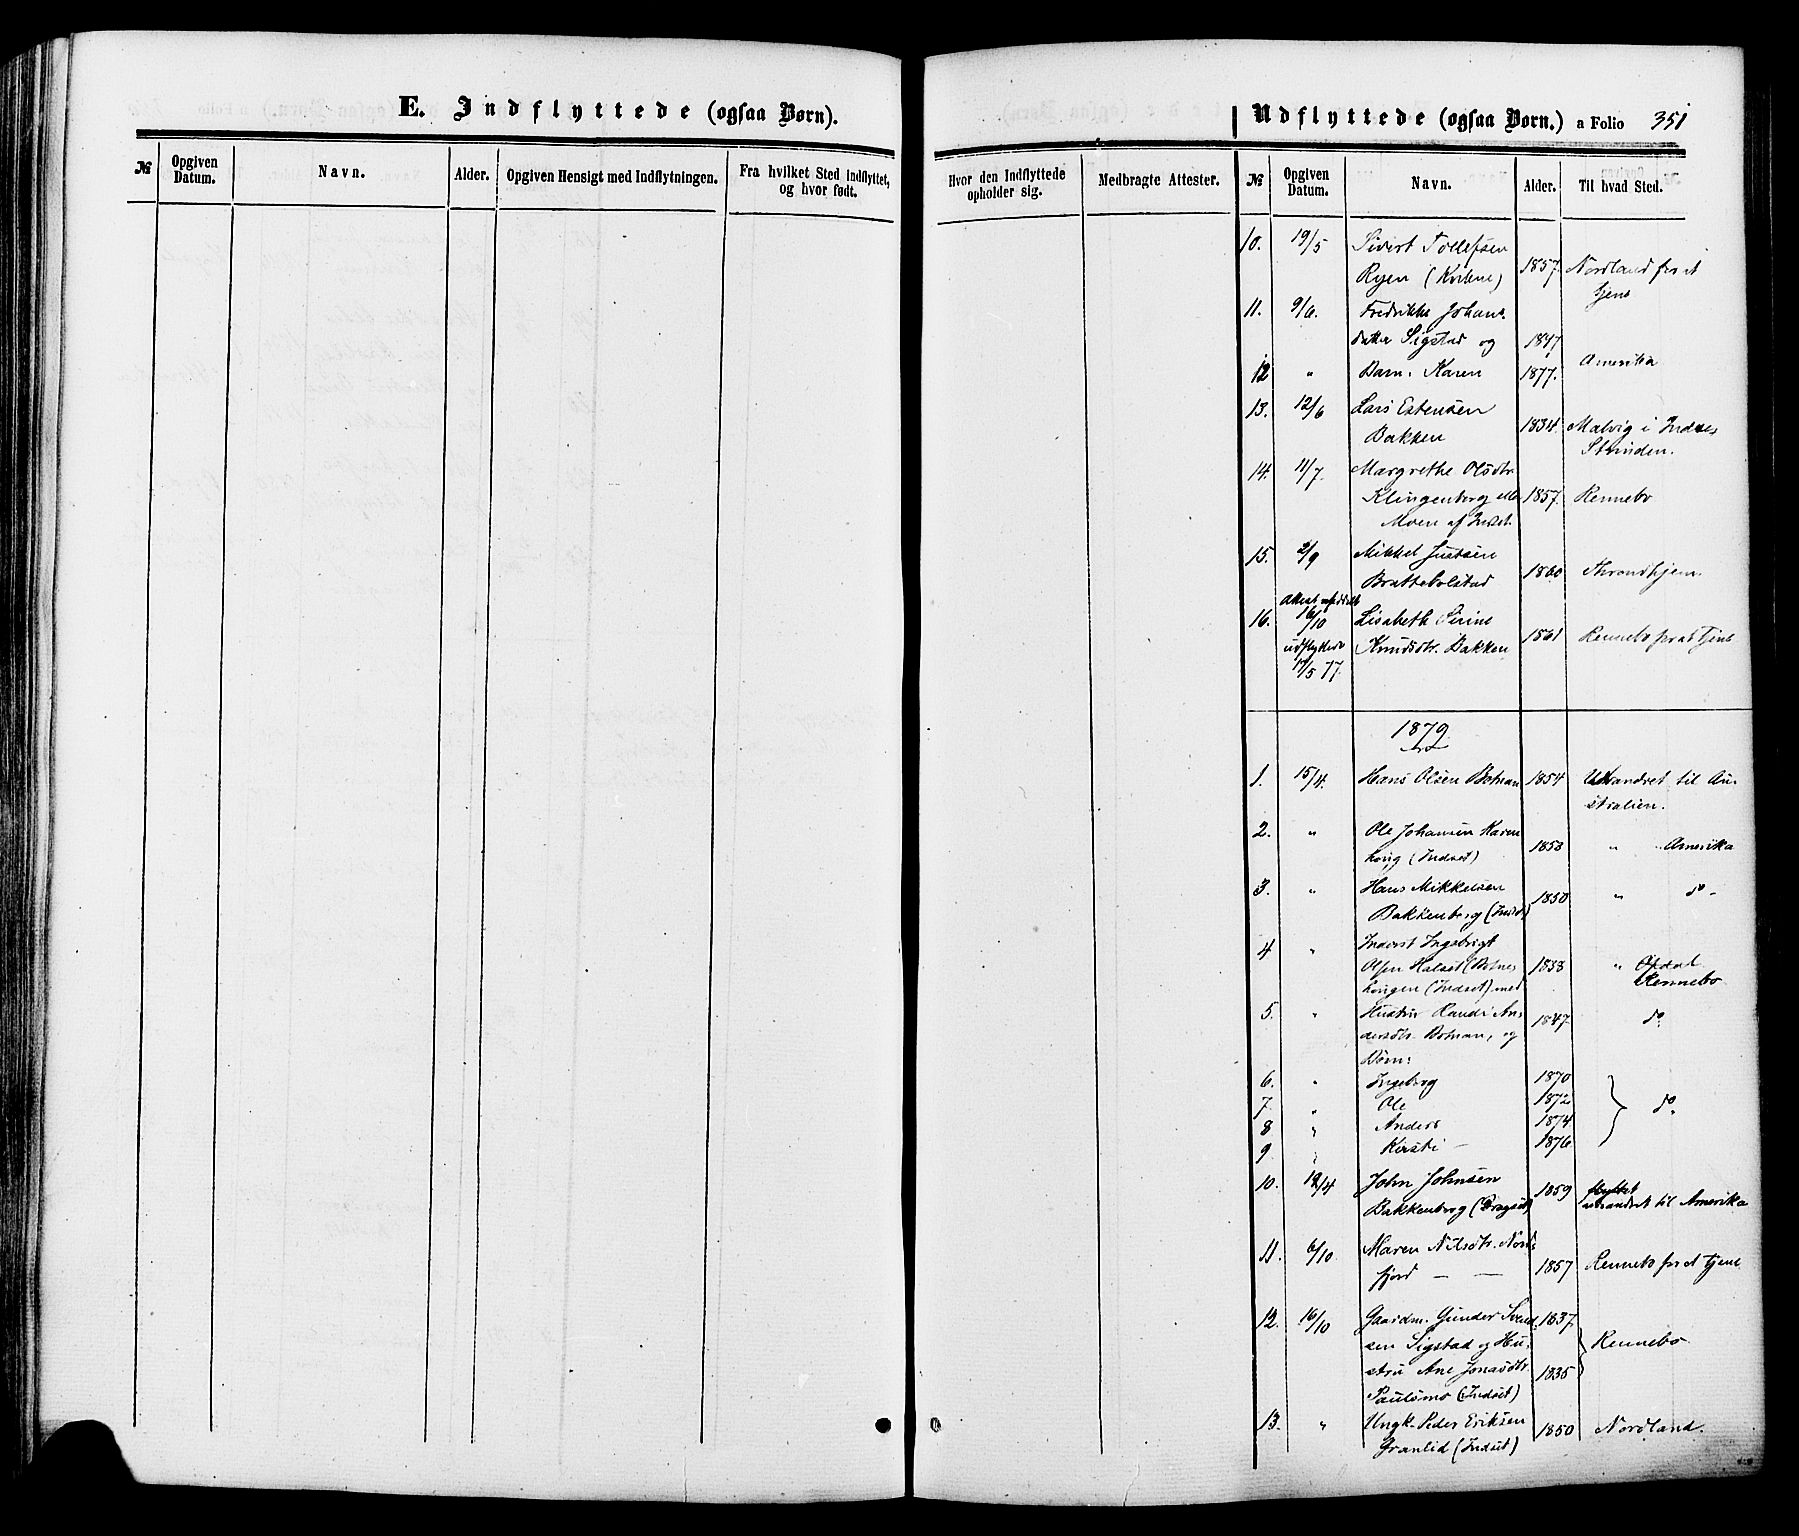 E. Indflyttede (ogsaa Børn).
№ Opgiven Datum. Navn. Alder. Opgiven Hensigt med Indflytningen. Fra hvilket Sted Indflyttet, og hvor født.
Udflyttede (ogsaa Børn.) a Folio 351
Hvor den Indflyttede opholder sig. Medbragte Attester. № Opgiven Datum. Navn. Alder. Til hvad Sted.
10. 19/5 Sivert Tollefsen
Ryen (Kvikne) 1857. Nordland for at
tjene
11. 9/6. Fredrikke Johans
datter Sigstad og 1847
12 " Barn. Karen 1877. Amerika
13. 12/6 Lars Estensen
Bakken 1834. Malvig i
Strinden.
14. 11/7. Margrethe Olsdtr.
Klingenberg 1857. Rennebo
Moen af Indset.
15. 2/9 Mikkel Justsen
Brattebolstad 1860 Throndhjem
Attest
16. 16/10 Lisabeth Sirine
udflyttede Knudsdtr. Bakken 1861 Rennebo for at tjene
17/5 77.
1879
1. 15/4. Hans Olsen Botnan 1854 Udvandret til Au-
stralien.
2. " Ole Johansen Karen
haug (Indset) 1853 " Amerika
3. " Hans Mikkelsen
Bakkenberg (Indset) 1850 " do -
4 " Inderst Ingebrigt
Olsen Halset (Botnes 1838 " Opdal
haugen (Indset) med Rennebo
5. " Hustru Randi An-
dersdtr. Botnan, og 1847 do
Børn:
6. " Ingeborg 1870
7. " Ole 1872 do
8 " Anders 1874
9 " Kirsti - 1876
10. 18/4 John Johnsen
Bakkenberg 1859 flyttet
udvandret til Amerika
11. 6/10 Maren Nilsdtr. Nord-
fjord - - 1857 Rennebo for at tjene
12. 16/10 Gaardm. Gunder Svend- 1837.
sen Sigstad og Hu- Rennebo
stru Ane Jonasdtr. 1835
Paulsmo (Indset)
13. " Ungk. Peder Eriksen
Granlid (Indset) 1850 Nordland.